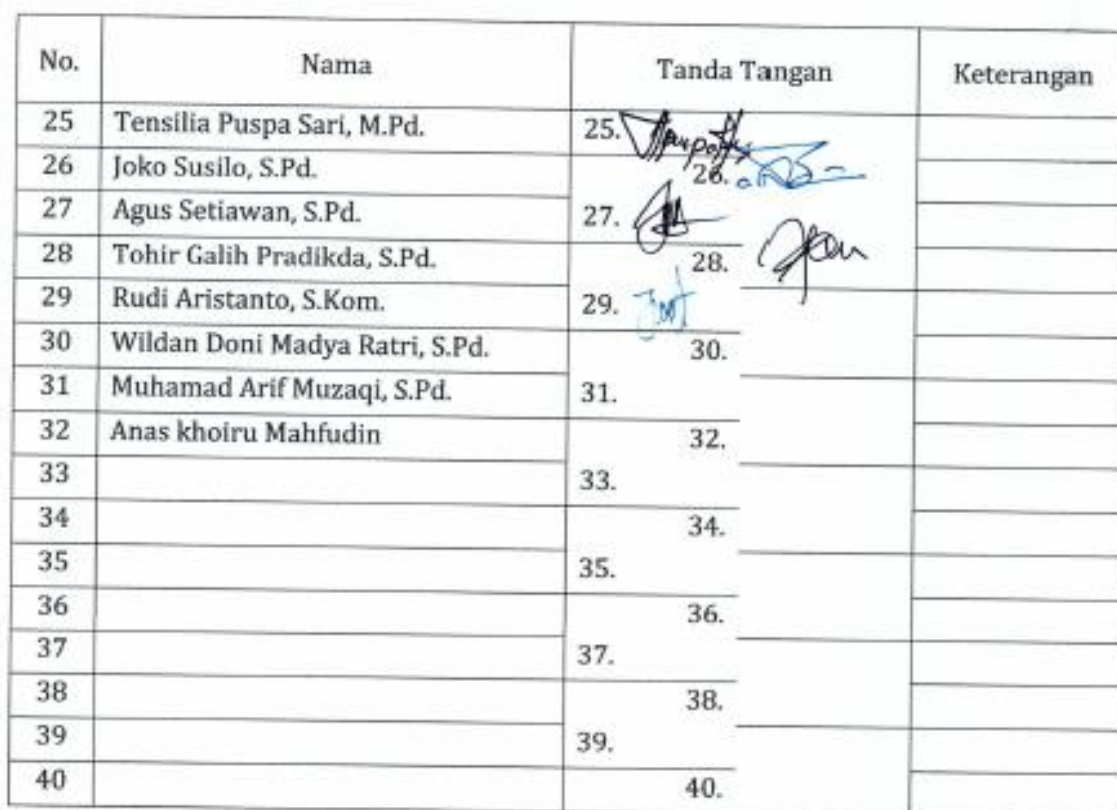 No. Nama Tanda Tangan Keterangan
25 Tensilia Puspa Sari, M.Pd. 25.
26 Joko Susilo, S.Pd. 26.
27 Agus Setiawan, S.Pd. 27.
28 Tohir Galih Pradikda, S.Pd. 28.
29 Rudi Aristanto, S.Kom. 29.
30 Wildan Doni Madya Ratri, S.Pd. 30.
31 Muhamad Arif Muzaqi, S.Pd. 31.
32 Anas khoiru Mahfudin 32.
33 33.
34 34.
35 35.
36 36.
37 37.
38 38.
39 39.
40 40.